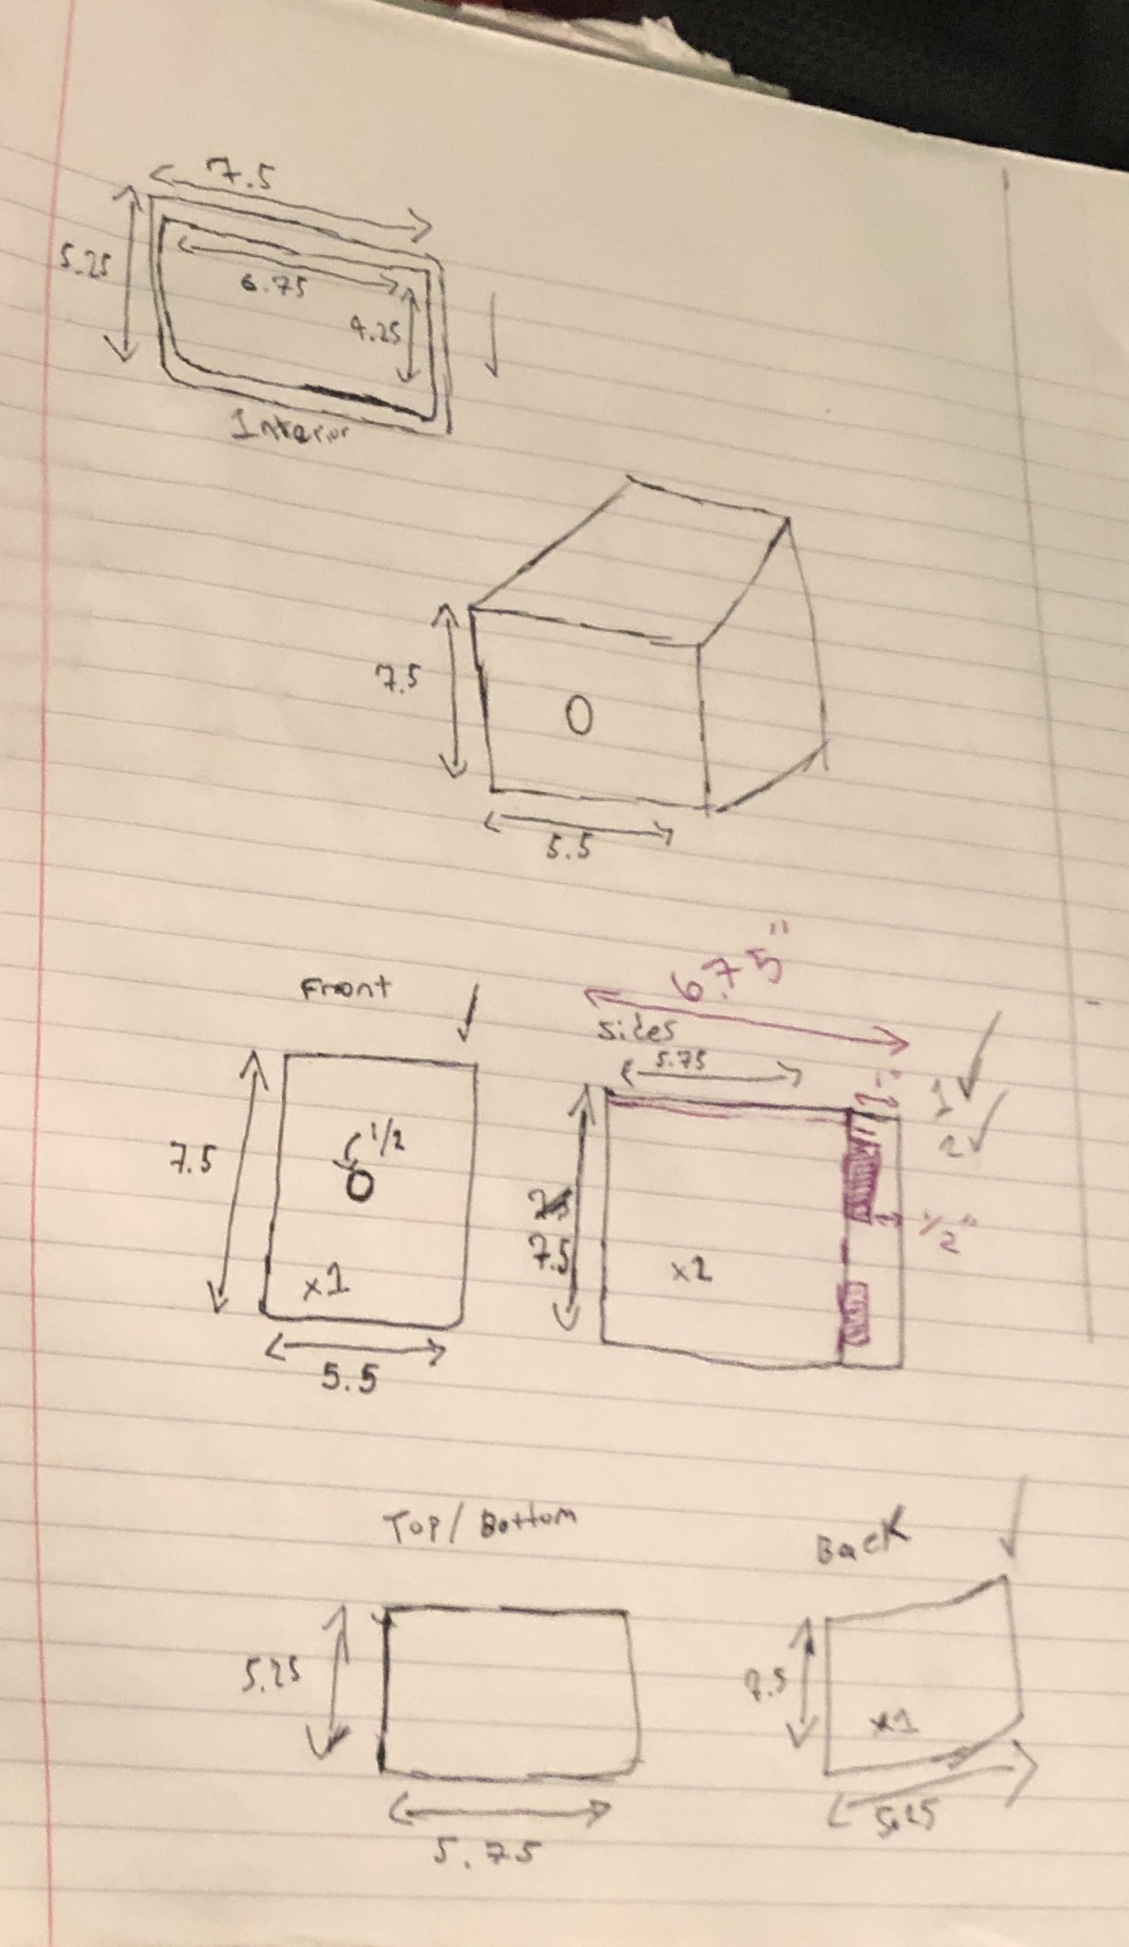 7.5
5.25
6.75
4.25
Interior
7.5
O
5.5
6.75"
Front
Sides
5.75
1
2
1/2
7.5
7.5
1/2"
x1
x2
5.5
Top/Bottom
Back
5.25
7.5
x1
5.75
5.25